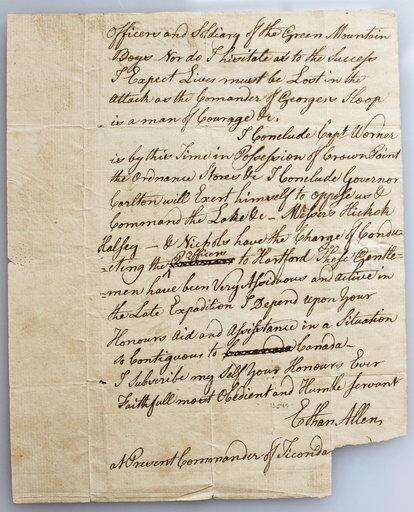 Officers and Soldiary of the Green Mountain
Boys Nor do I hesitate as to the Success
I Expect Lives must be Lost in the
Attack as the Comander of Georges Sloop
is a man of Courage &c.
I Conclude Capt Worner
is by this Time in Possession of Crown Point
the Ordnance Stores &c I Conclude Governor
Carlton will Exert himself to oppose us &
Command the Lake &c - Messrs Hickok
Halsey - & Nichols have the Charge of Condu-
-cting the Officers to Hartford These Gentle-
-men have been Very Assiduous and active in
the Late Expedition I Depend upon Your
Honours Aid and Assistance in a Situation
so Contiguous to Canada -
I Subscribe my Self Your Honours Ever
Faithfull most Obedient and Humble Servant
Ethan Allen
at Present Commander of Ticonda